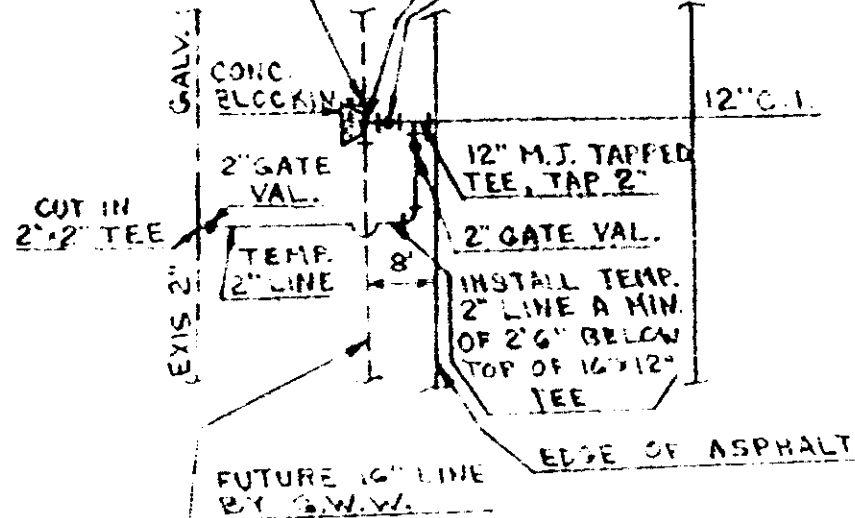 GALV.
CONC.
BLOCKIN
12" C.I.
2" GATE
VAL.
12" M.J. TAPPED
TEE, TAP 2"
CUT IN
2"x2" TEE
2" GATE VAL.
TEMP.
2" LINE
8'
INSTALL TEMP.
2" LINE A MIN.
OF 2'6" BELOW
TOP OF 16"x12"
TEE
EXIS 2"
EDGE OF ASPHALT
FUTURE 16" LINE
BY